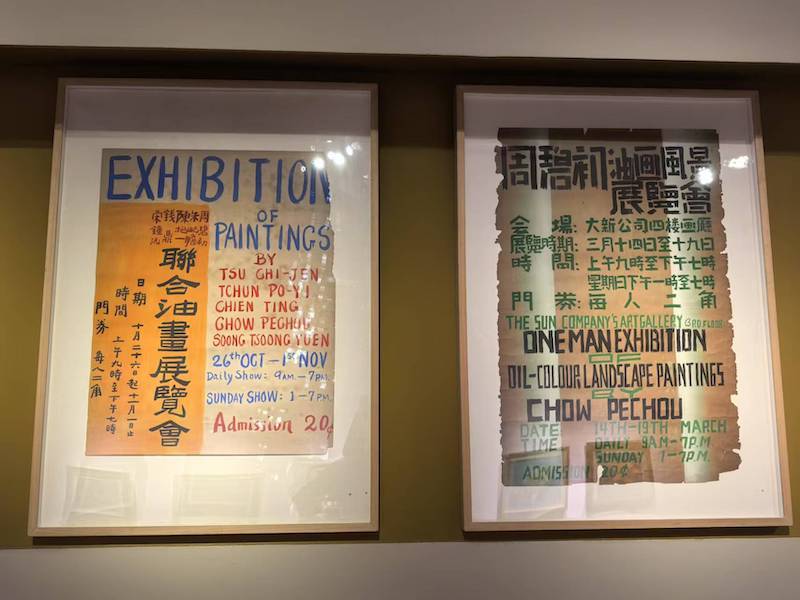 EXHIBITION
OF
PAINTINGS
BY
TSU CHI-JEN
TCHUN PO-YI
CHIEN TING
CHOW PECHOU
SOONG TSOONG YUEN
26th OCT - 1st NOV
Daily Show: 9AM. - 7PM.
SUNDAY SHOW: 1 - 7 PM.
Admission 20¢
周碧初
朱屺瞻
陳抱一
钱鼎
宋鐘沅
聯合油畫展覽會
日期 十月二十六日起十一月一日止
時間 上午九時至下午七時
門券 每人二角
周碧初油画風景
展覽會
会場：大新公司四楼画廳
展覽時期：三月十四日至十九日
時間：上午九時至下午七時
星期日下午一時至七時
門券：每人二角
THE SUN COMPANY'S ART GALLERY (3RD. FLOOR
ONE MAN EXHIBITION
OF
OIL-COLOUR LANDSCAPE PAINTINGS
BY
CHOW PECHOU
DATE 14TH-19TH MARCH
TIME DAILY 9AM-7P.M.
SUNDAY 1-7P.M.
ADMISSION 20¢